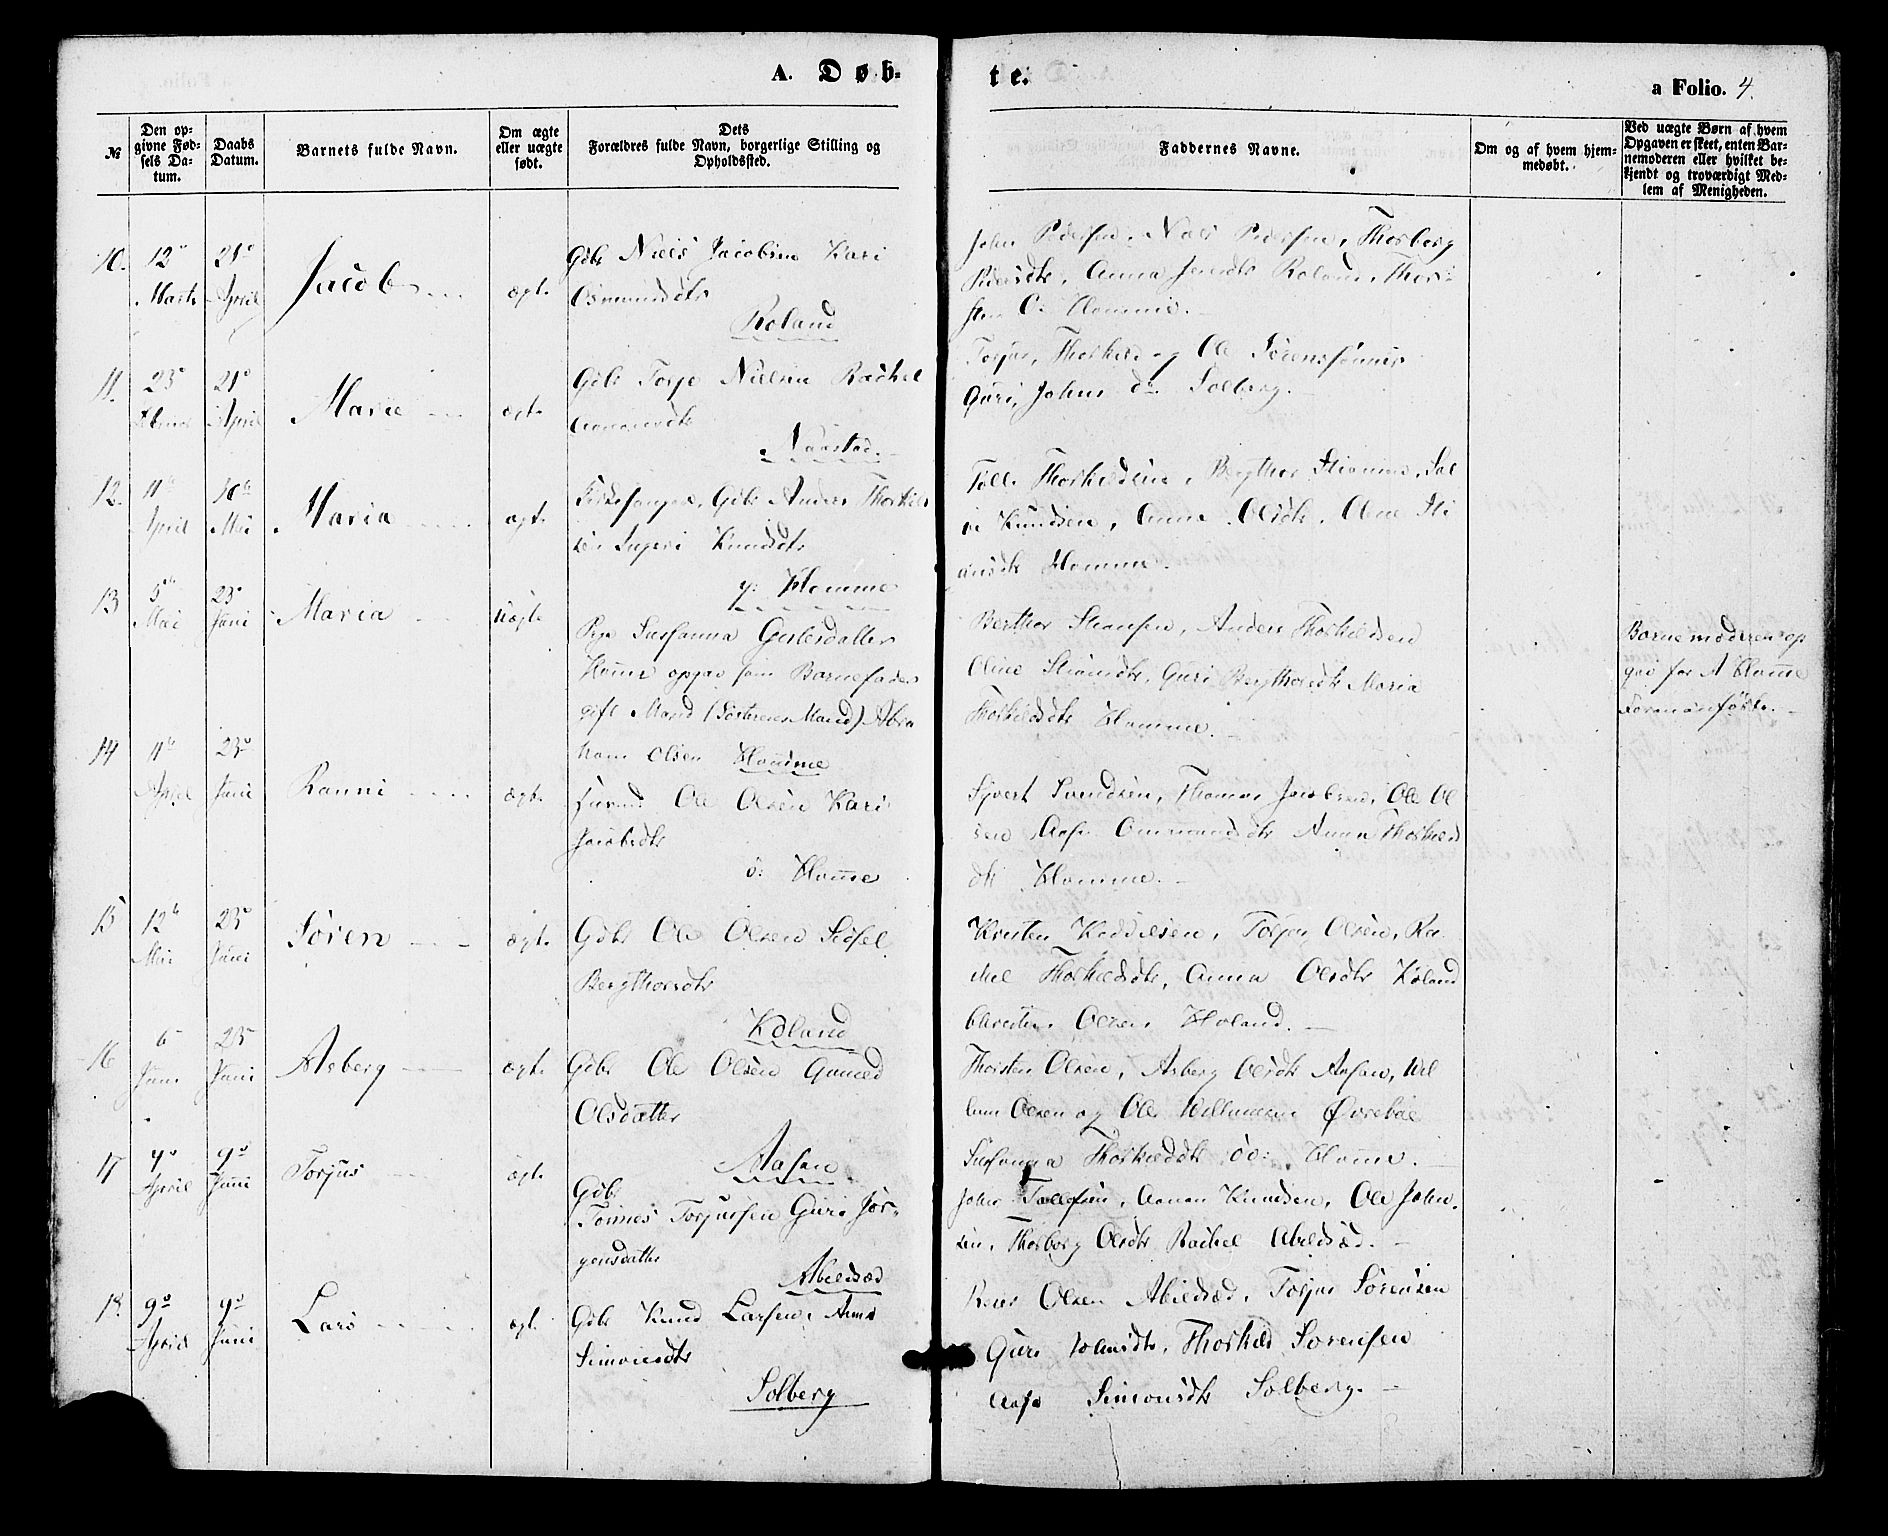 A. Døb-
te.
a Folio. 4.
№
Den op-
givne Fød-
sels Da-
tum.
Daabs
Datum.
Barnets fulde Navn.
Om ægte
eller uægte
født.
Dets
Forældres fulde Navn, borgerlige Stilling og
Opholdssted.
Faddernes Navne.
Om og af hvem hjem-
medøbt.
Ved uægte Børn af hvem
Opgaven er skeet, enten Bar-
nemoderen eller hvilket be-
kjendt og troværdigt Med-
lem af Menigheden.
10.
12
Marts
21
April
Jacob
ægte
Gbr Niels Jacobsen Kari
Osmundsdtr
Roland
John Pedersen, Niels Pedersen, Thorborg
Pedersdtr, Anna Jensdtr Roland, Thor-
sten O. Homme.
11.
25
21
April
Marie
ægte
Gbr Torje Nielsen Rachel
Aanonsdtr
Torjus, Thorkild og Ole Sörenssönner
Guri Johns dr Solberg.
12.
11
April
Mai
Maria
ægte
Kirkesanger, Gbr Anders Thorkild
sen Ingeri Knudsdtr
y: Homme
Tolle Thorkildsen, Bergthor Homme, Sal
ve Knudsen, Anna Olsdtr, Oline
Homme.
13
5
Mai
23
Juni
Maria
uægte
Pige Susanna Gjertsdatter
Homme opgav som Barnefader
gift Mand (Søsterens Mand) Abra
ham Olsen Homme
Berthor Stiansen, Anders Thorkildsen
Oline Stiansdtr, Guri Bergthorsdtr Maria
Thorkildsdtr Homme.
Barnemoderen op
gav for A Homme
14
11
April
23
Juni
Ranni
ægte
Ole Olsen Kari
Jacobsdtr
ö: Homme
Sjvert Svendsen, Thomas Jacobsen, Ole Ol
sen Aase Ommundsdtr Anna Thorkilds
dtr Homme.
15
12
Mai
23
Juni
Sören
ægte
Gbr Ole Olsen Sidsel
Bergthorsdtr
Köland
Kristen Keddelsen, Torjus Olsen, Ra-
chel Thorkildsdtr, Anna Olsdtr Köland
Christen Olsen Holand.
16
6
Juni
23
Juni
Asberg
ægte
Gbr Ole Olsen Gunild
Olsdatter
Aasen
Thorsten Olsen, Asberg Olsdtr Aasen, Wil
lum Olsen og Ole Willumsen Øvrebøe
Susanna Thorkildsdtr ö: Homme.
17
April
9
Juni
Torjus
ægte
Gbr
Tönnes Torjussen Guri Jör-
gensdatter
Abildsæd
John Tollefsen, Aanon Knudsen, Ole John-
sen, Thorborg Olsdtr Rachel Abildsæd.
18.
9
April
9
Juni
Lars
ægt.
Gbr Knud Larsen, Anna
Simonsdtr
Solberg
Reier Olsen Abildsæd, Torjus Sörensen
Guri Johnsdtr, Thorkild Sörensen
Aase Simonsdtr Solberg.